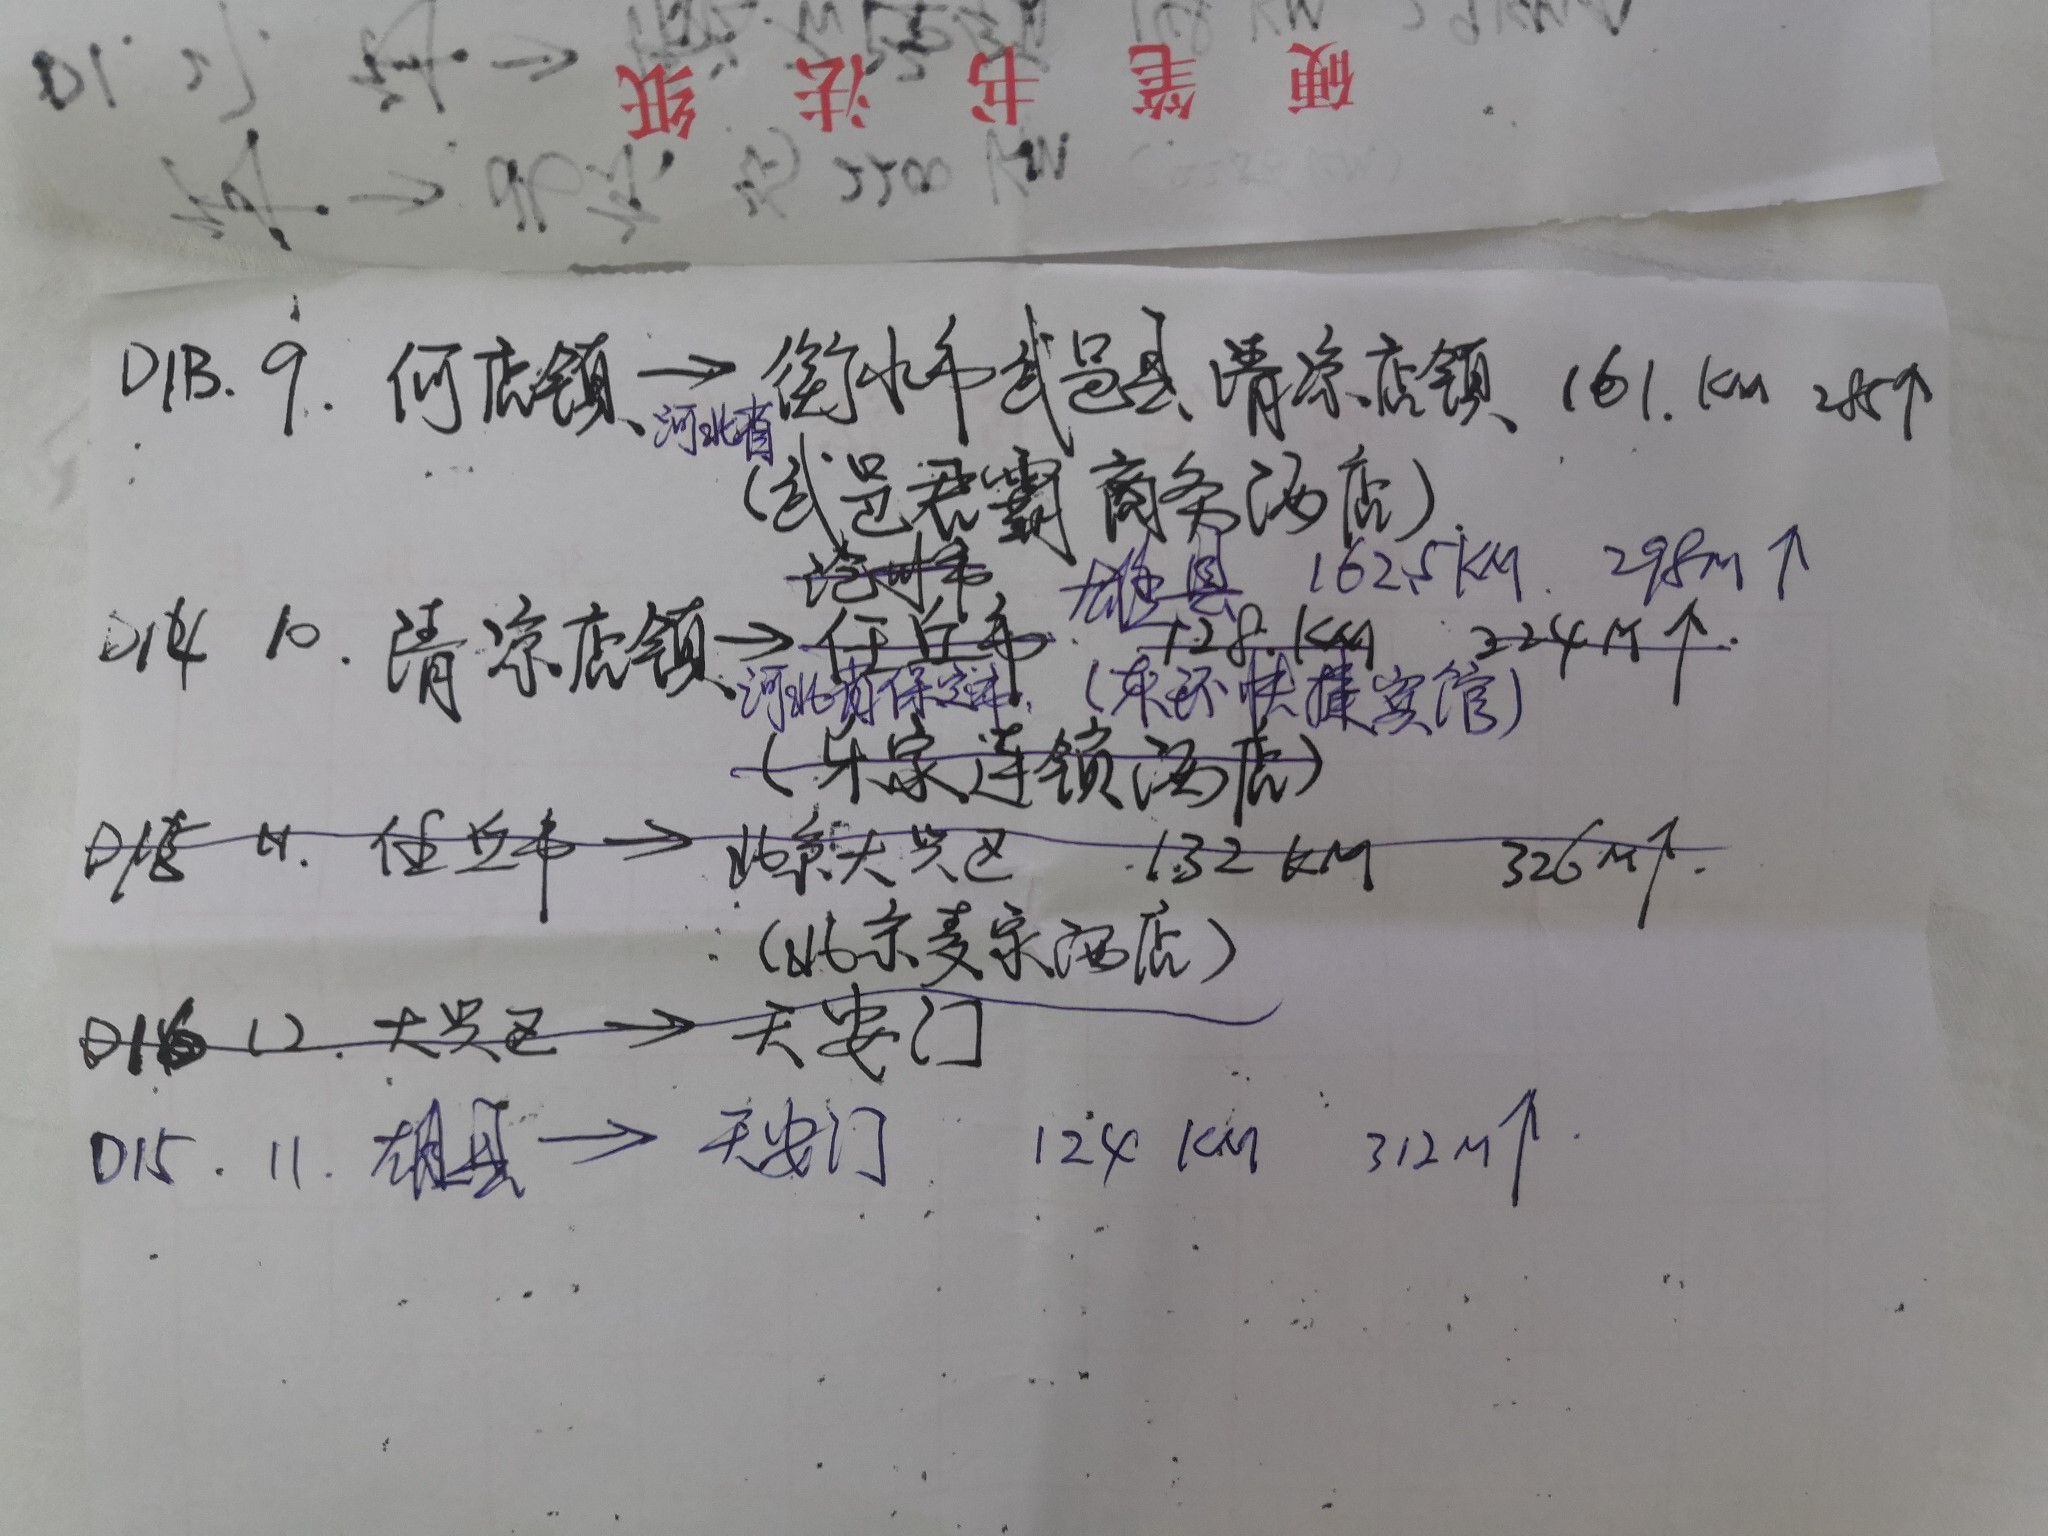 硬笔书法纸
D13. 9. 何店镇 → 衡水市武邑县清凉店镇 161. KM 285↑
河北省
(武邑君霸商务酒店)
沧州市 雄县 162.5KM. 298M↑
D14 10. 清凉店镇 → 任丘市 128. KM 224M↑.
河北省保定市. (东环快捷宾馆)
(乐家连锁酒店)
D15 11. 任丘市 → 北京大兴区 132 KM 326M↑.
(北京麦家酒店)
D16 12. 大兴区 → 天安门
D15. 11. 雄县 → 天安门 124 KM 312M↑.